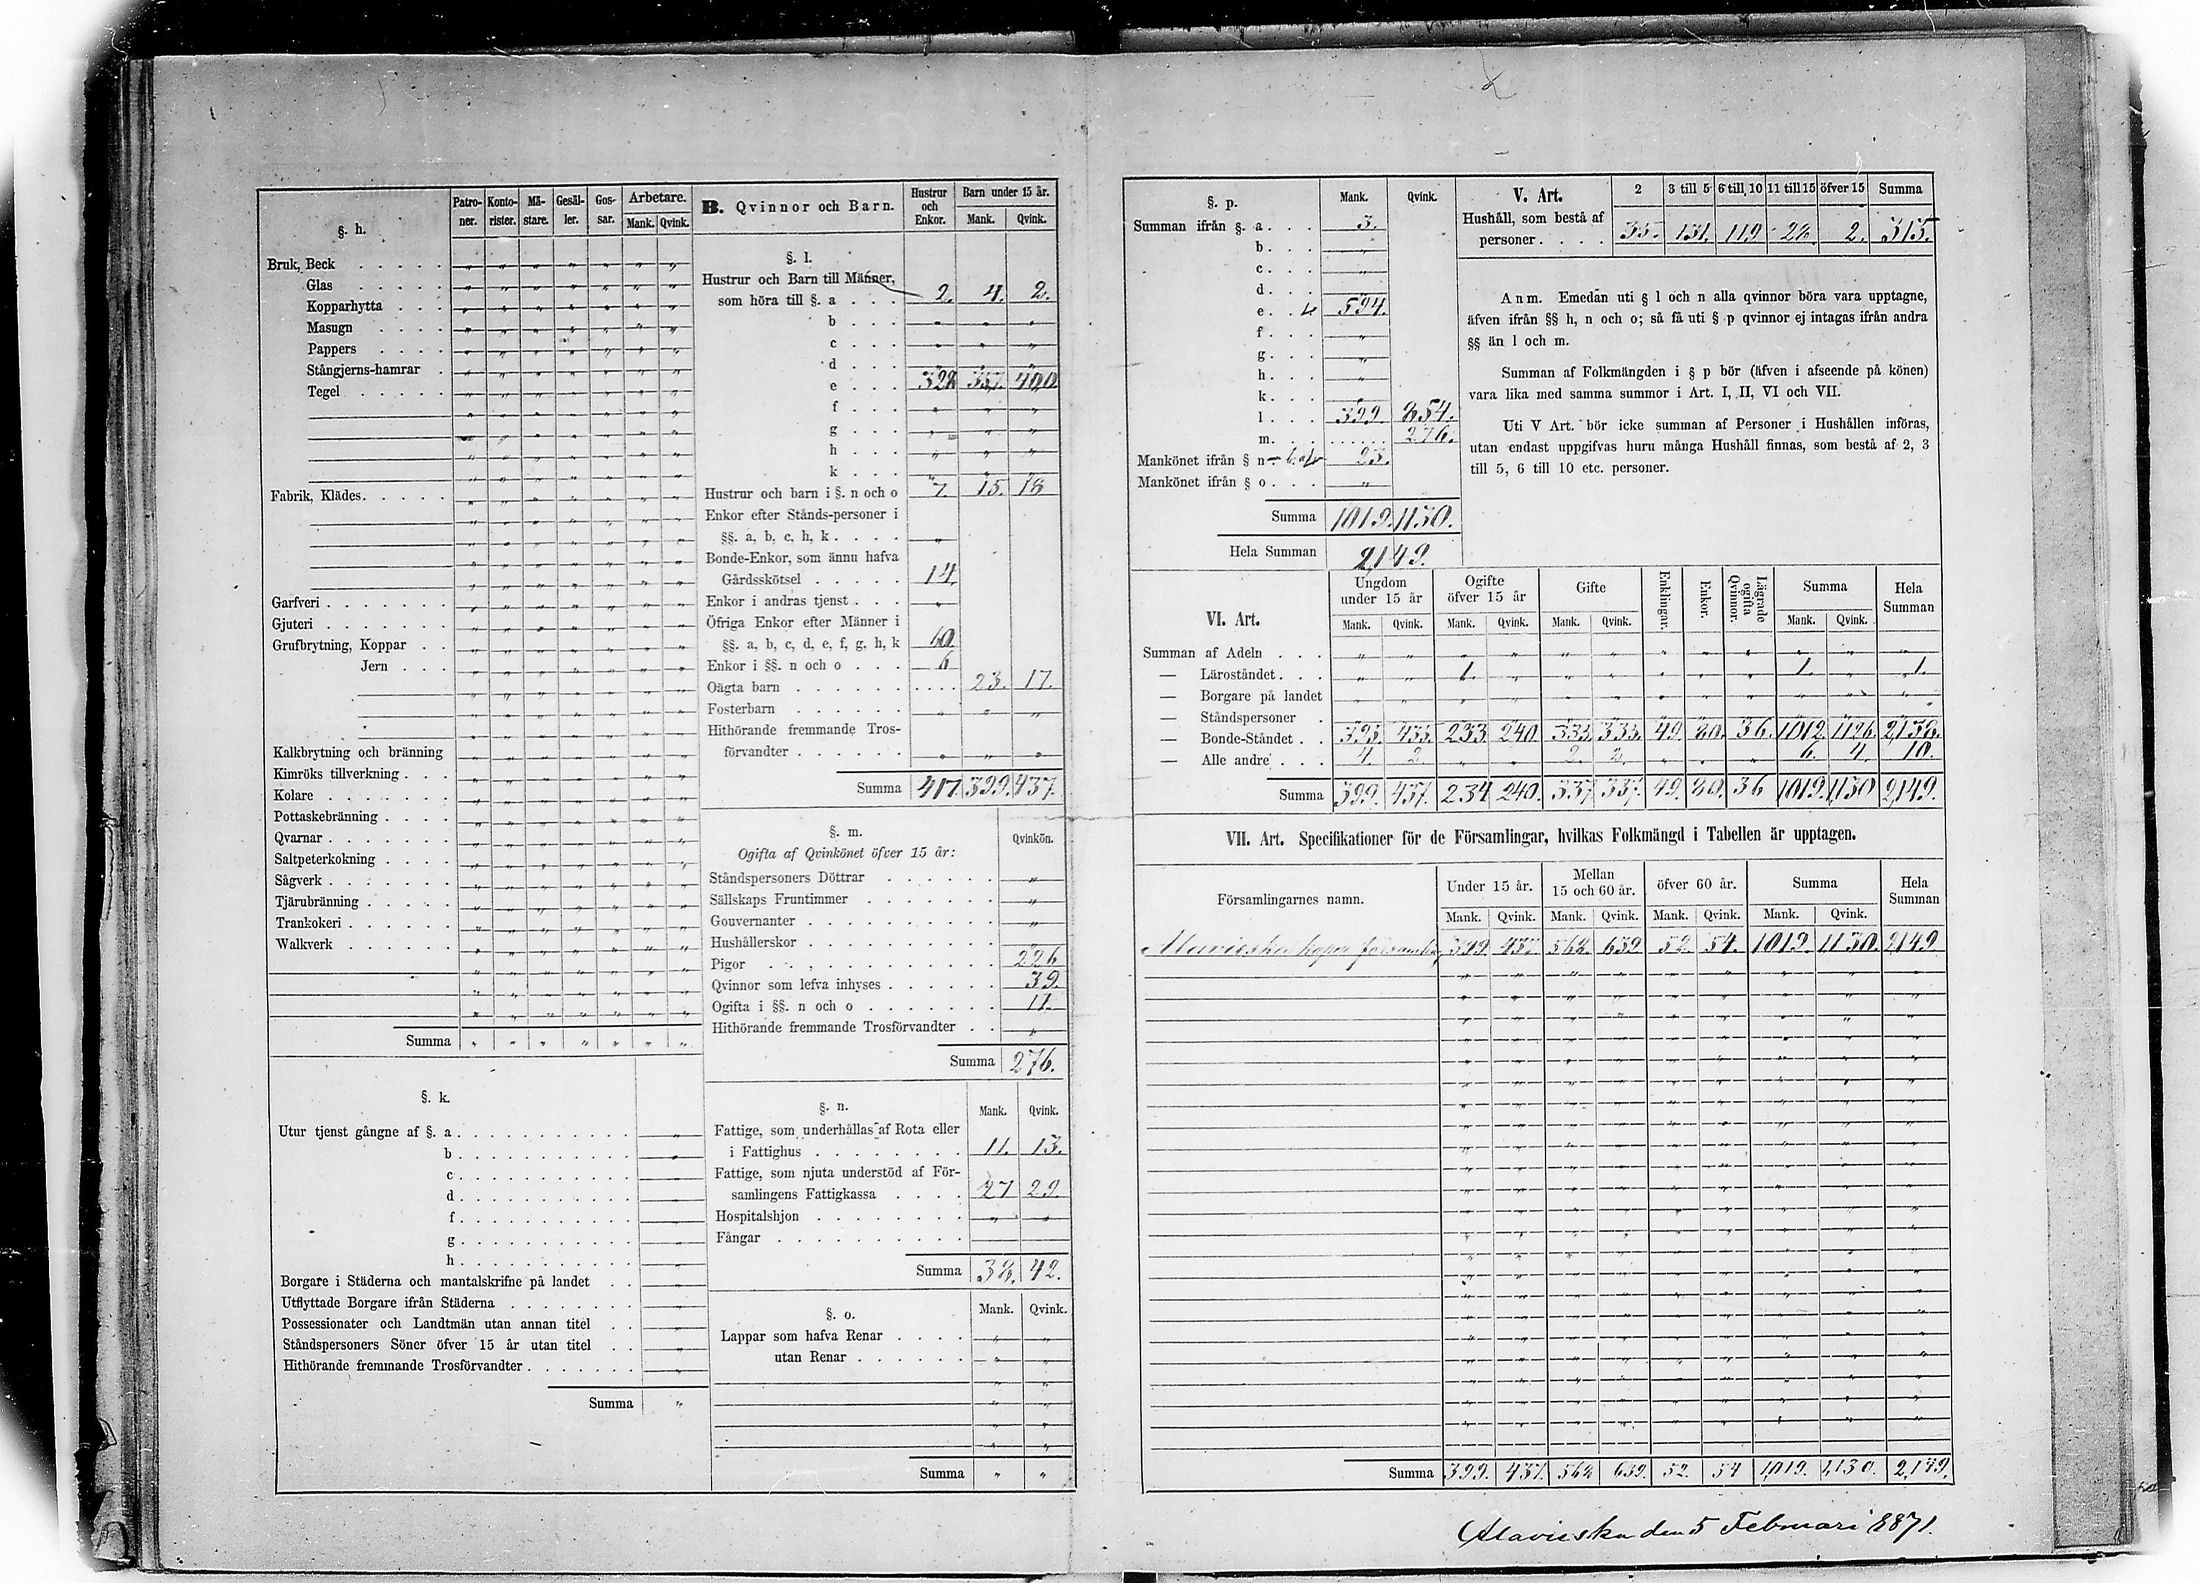 §. h.
Patro-ner. Konto-rister. Mä-stare. Gesäl-ler. Gos-sar. Arbetare. Mank. Qvink.
Bruk, Beck
Glas
Kopparhytta
Masugn
Pappers
Stångjerns-hamrar
Tegel
Fabrik, Klädes
Garfveri
Gjuteri
Grufbrytning, Koppar
Jern
Kalkbrytning och bränning
Kimröks tillverkning
Kolare
Pottaskebränning
Qvarnar
Saltpeterkokning
Sågverk
Tjärubränning
Trankokeri
Walkverk
Summa
§. k.
Utur tjenst gångne af §. a
b
c
d
f
g
h
Borgare i Städerna och mantalskrifne på landet
Utflyttade Borgare ifrån Städerna
Possessionater och Landtmän utan annan titel
Ståndspersoners Söner öfver 15 år utan titel
Hithörande fremmande Trosförvandter
Summa
B. Qvinnor och Barn.
Hustrur och Enkor. Barn under 15 år. Mank. Qvink.
§. l.
Hustrur och Barn till Männer,
som höra till §. a 2. 4. 2.
b
c
d
e 328 357. 400
f
g
h
k
Hustrur och barn i §. n och o 7. 15. 18
Enkor efter Stånds-personer i
§§. a, b, c, h, k
Bonde-Enkor, som ännu hafva
Gårdsskötsel 14.
Enkor i andras tjenst
Öfriga Enkor efter Männer i
§§. a, b, c, d, e, f, g, h, k 60.
Enkor i §§. n och o 6
Oägta barn 23. 17.
Fosterbarn
Hithörande fremmande Tros-
förvandter
Summa 417. 399. 437.
§. m.
Qvinkön.
Ogifta af Qvinkönet öfver 15 år:
Ståndspersoners Döttrar
Sällskaps Fruntimmer
Gouvernanter
Hushållerskor
Pigor 226
Qvinnor som lefva inhyses 39.
Ogifta i §§. n och o 11.
Hithörande fremmande Trosförvandter
Summa 276.
§. n. Mank. Qvink.
Fattige, som underhållas af Rota eller
i Fattighus 11. 13.
Fattige, som njuta understöd af För-
samlingens Fattigkassa 27 29.
Hospitalshjon
Fångar
Summa 38. 42.
§. o. Mank. Qvink.
Lappar som hafva Renar
utan Renar
Summa
§. p. Mank. Qvink.
Summan ifrån §. a 3.
b
c
d
e 594.
f
g
h
k
l 399. 854.
m 276.
Mankönet ifrån § n 23.
Mankönet ifrån § o
Summa 1019. 1130.
Hela Summan 2,149.
V. Art. 2 3 till 5 6 till 10 11 till 15 öfver 15 Summa
Hushåll, som bestå af
personer 35. 131. 119. 28. 2. 315.
Anm. Emedan uti § l och n alla qvinnor böra vara upptagne,
äfven ifrån §§ h, n och o; så få uti § p qvinnor ej intagas ifrån andra
§§ än l och m.
Summan af Folkmängden i § p bör (äfven i afseende på könen)
vara lika med samma summor i Art. I, II, VI och VII.
Uti V Art. bör icke summan af Personer i Hushållen införas,
utan endast uppgifvas huru många Hushåll finnas, som bestå af 2, 3
till 5, 6 till 10 etc. personer.
VI. Art.
Ungdom under 15 år Ogifte öfver 15 år Gifte Enklingar. Enkor. Lägrade ogifta Qvinnor. Summa Hela Summan
Mank. Qvink. Mank. Qvink. Mank. Qvink. Mank. Qvink.
Summan af Adeln
— Läroståndet 1. 1. 1.
— Borgare på landet
— Ståndspersoner
— Bonde-Ståndet 395. 435. 233. 240. 335. 335. 49. 80. 36. 1012. 1126. 2,138.
— Alle andre 4. 2 2. 2. 6. 4. 10.
Summa 399. 437. 234 240. 337. 337. 49. 80. 36 1019. 1,130 2,149.
VII. Art. Specifikationer för de Församlingar, hvilkas Folkmängd i Tabellen är upptagen.
Församlingarnes namn. Under 15 år. Mellan 15 och 60 år. öfver 60 år. Summa Hela Summan
Mank. Qvink. Mank. Qvink. Mank. Qvink. Mank. Qvink.
Alavieska kapell församling 399. 437. 568. 639. 52. 54. 1019. 1130. 2149
Summa 399. 437. 568 639. 52. 54 1,019. 1,130. 2,149.
Alavieska den 5 Februari 1871.